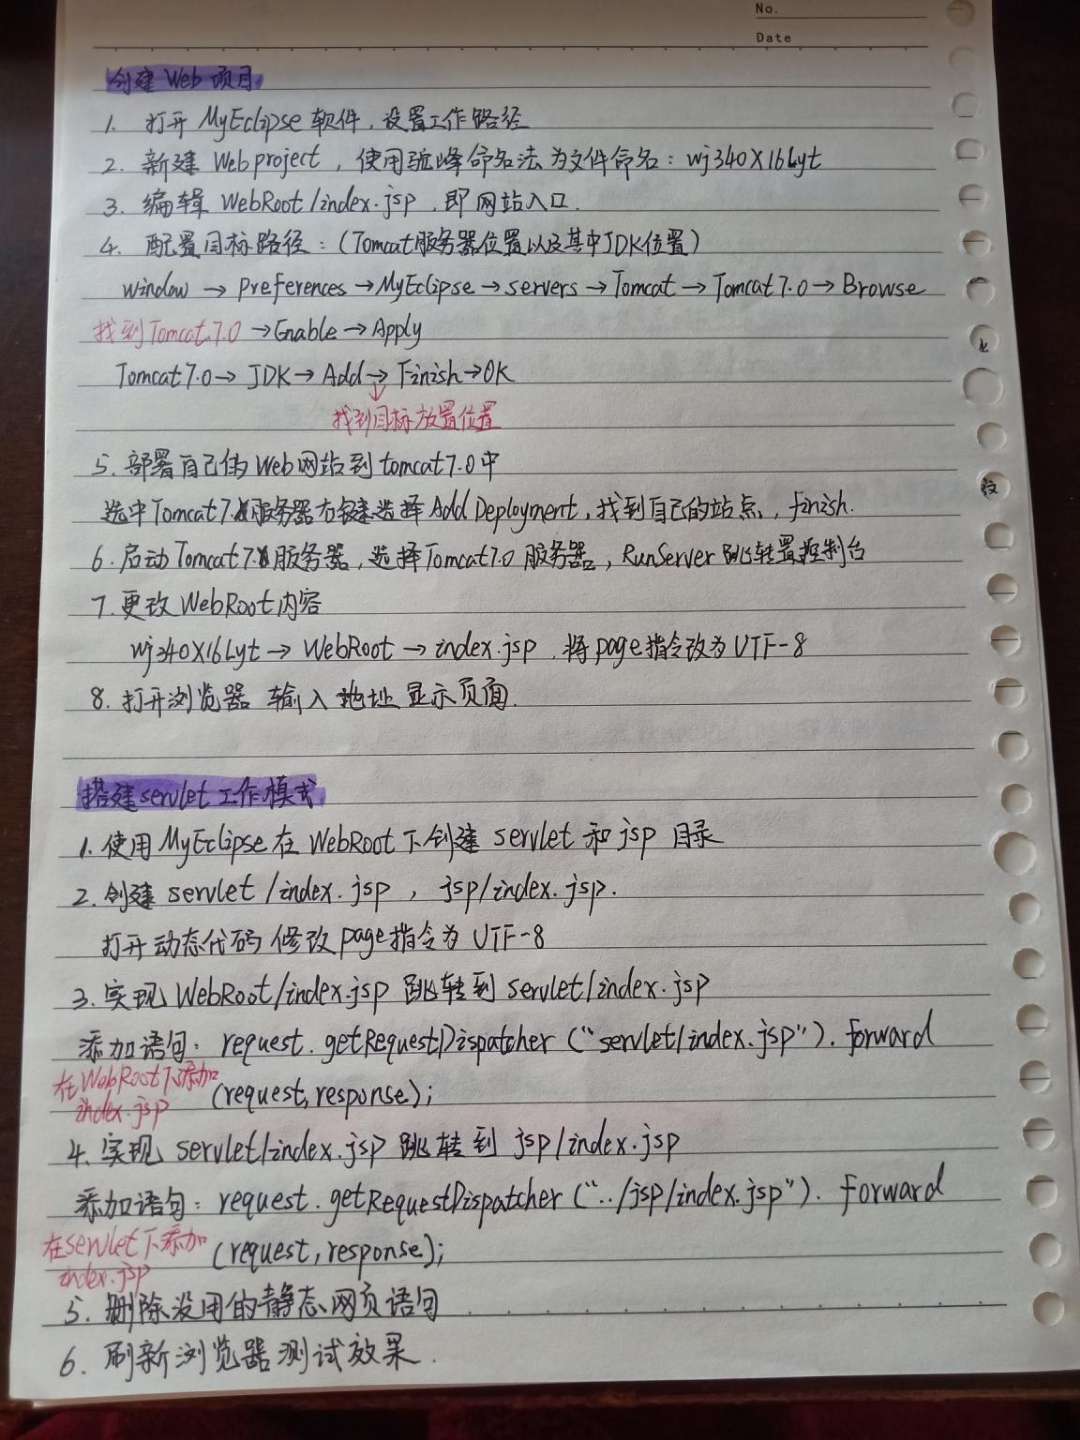 No.
Date
创建 Web 项目
1. 打开 MyEclipse 软件，设置工作路径
2. 新建 Web project，使用驼峰命名法为文件命名：wj340X16Lyt
3. 编辑 WebRoot/index.jsp，即网站入口.
4. 配置目标路径：(Tomcat服务器位置以及其中JDK位置)
window → Preferences → MyEclipse → servers → Tomcat → Tomcat 7.0 → Browse
找到Tomcat 7.0 → Enable → Apply
Tomcat 7.0 → JDK → Add → Finish → OK
找到目标放置位置
5. 部署自己的Web网站到tomcat7.0中
选中Tomcat7.服务器右键选择 Add Deployment, 找到自己的站点, finish.
6. 启动Tomcat7.服务器, 选择Tomcat7.0 服务器, RunServer 跳转置控制台
7. 更改 WebRoot内容
wj340X16Lyt → WebRoot → index.jsp, 将page指令改为 UTF-8
8. 打开浏览器 输入地址 显示页面.
搭建servlet工作模式
1. 使用MyEclipse 在 WebRoot 下创建 servlet 和 jsp 目录
2. 创建 servlet/index.jsp, jsp/index.jsp.
打开动态代码 修改 page指令为 UTF-8
3. 实现 WebRoot/index.jsp 跳转到 servlet/index.jsp
添加语句: request.getRequestDispatcher ("servlet/index.jsp"). forward
在WebRoot下添加 (request, response);
index.jsp
4. 实现 servlet/index.jsp 跳转到 jsp/index.jsp
添加语句: request.getRequestDispatcher ("../jsp/index.jsp"). forward
在servlet下添加 (request, response);
index.jsp
5. 删除没用的静态网页语句
6. 刷新浏览器测试效果.